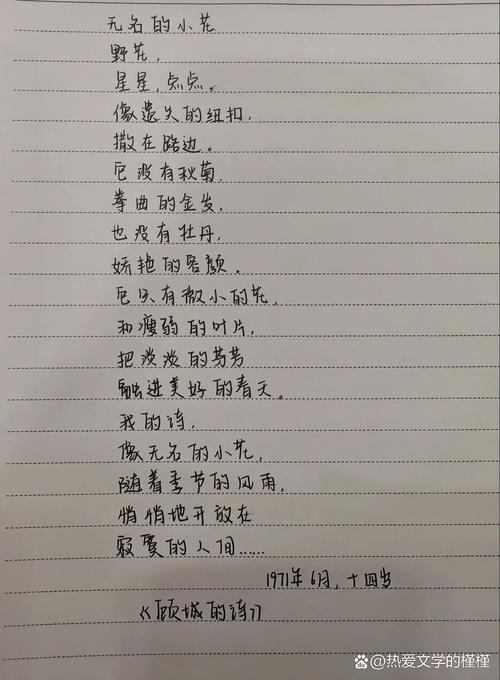 无名的小花
野花,
星星,点点。
像遗失的纽扣,
撒在路边。
它没有秋菊,
拳曲的金发,
也没有牡丹,
娇艳的容颜。
它只有微小的花,
和瘦弱的叶片,
把淡淡的芬芳
融进美好的春天。
我的诗,
像无名的小花,
随着季节的风雨,
悄悄地开放在
寂寞的人间……
1971年6月,十四岁
《顾城的诗》
@热爱文学的槿槿